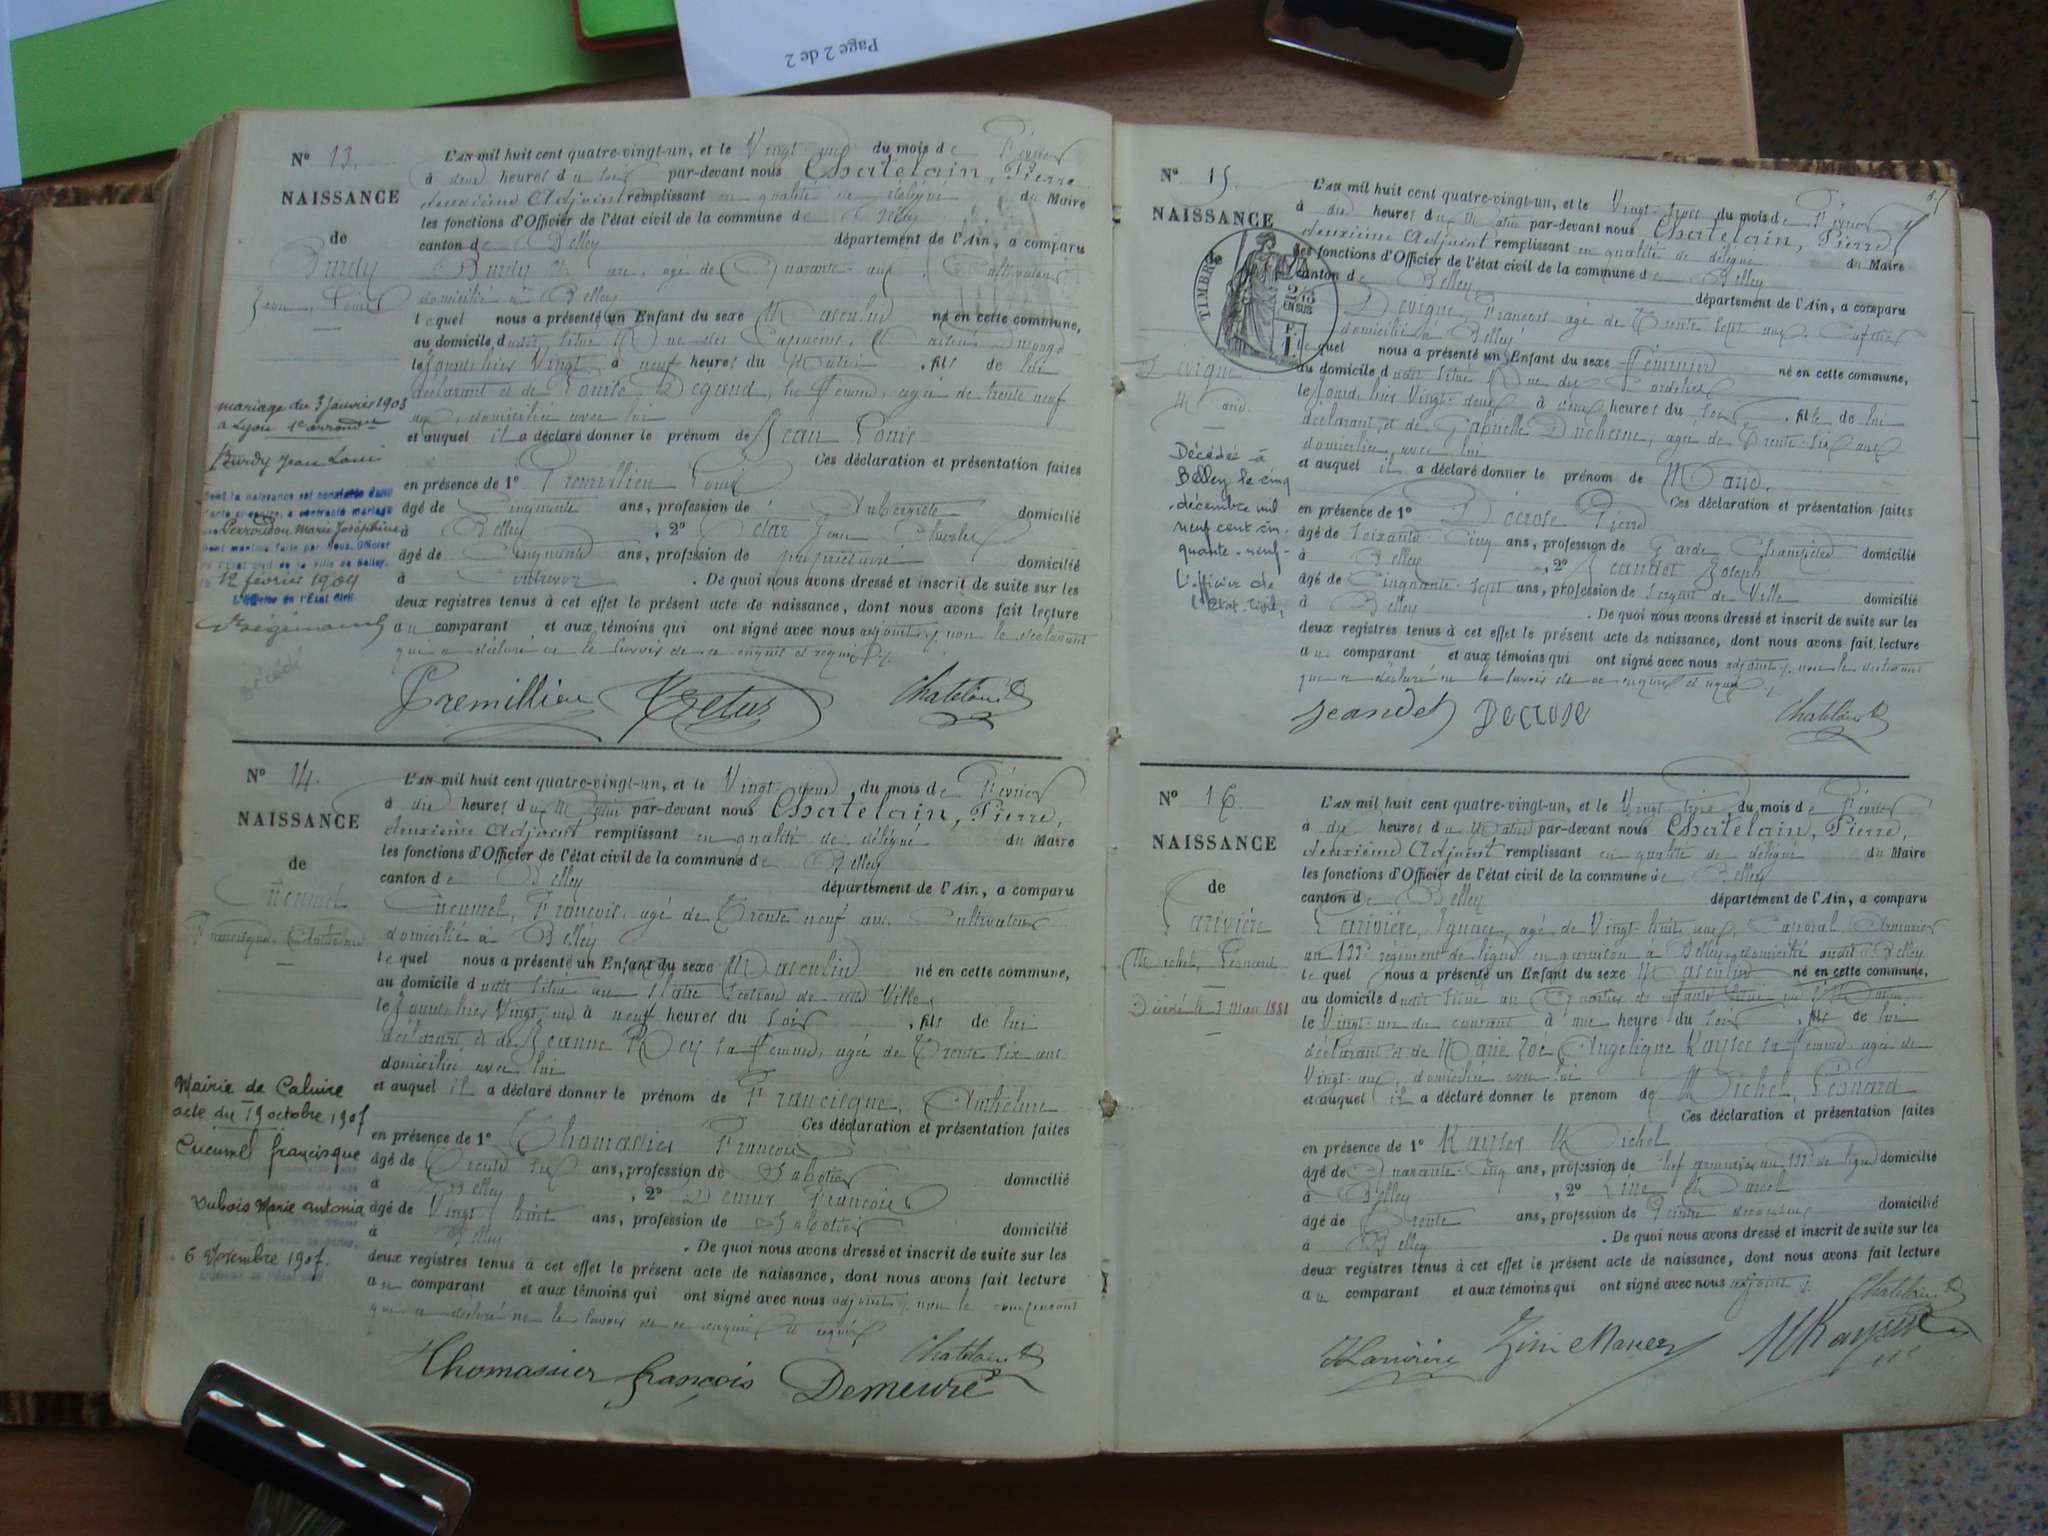 Page 2 de 2
N° 13.
NAISSANCE
de
Burdy
Jean, Louis
L'AN mil huit cent quatre-vingt-un, et le Vingt-un du mois de Février
à deux heures du soir par-devant nous Chatelain, Pierre
deuxième Adjoint remplissant en qualité de délégué du Maire
les fonctions d'Officier de l'état civil de la commune de Belley
canton de Belley département de l'Ain, a comparu
Burdy agé de Quarante ans, Cultivateur
domicilié à Belley
lequel nous a présenté un Enfant du sexe Masculin né en cette commune,
au domicile dudit, situé Rue des Capucins,
le jourd'hier Vingt à neuf heures du Matin, fils de lui
déclarant et de Louise Degand, sa femme, agée de trente neuf
ans, domiciliée avec lui
et auquel il a déclaré donner le prénom de Jean Louis
Ces déclaration et présentation faites
en présence de 1° Premillieu Louis
âgé de Cinquante ans, profession de Aubergiste domicilié
à Belley, 2° Jean
âgé de Cinquante ans, profession de propriétaire domicilié
à . De quoi nous avons dressé et inscrit de suite sur les
deux registres tenus à cet effet le présent acte de naissance, dont nous avons fait lecture
au comparant et aux témoins qui ont signé avec nous adjoint, non le déclarant
qui a déclaré ne le savoir de ce enquis et requis
Premillieu Chatelain
mariage du 3 janvier 1903
à Lyon 1er arrondt
Burdy Jean Louis
Dont la naissance est constatée dans
l'acte ci-contre, a contracté mariage
avec Perroudon Marie Joséphine
Dont mention faite par Nous, Officier
de l'Etat civil de la ville de Belley,
12 février 1904
L'Officier de l'État Civil
décédé
N° 14.
NAISSANCE
de
Cucumel
Francisque, Anthelme
L'AN mil huit cent quatre-vingt-un, et le Vingt-deux du mois de Février
à dix heures du Matin par-devant nous Chatelain, Pierre,
deuxième Adjoint remplissant en qualité de délégué du Maire
les fonctions d'Officier de l'état civil de la commune de Belley
canton de Belley département de l'Ain, a comparu
Cucumel, François, agé de Trente neuf ans Cultivateur
domicilié à Belley
lequel nous a présenté un Enfant du sexe Masculin né en cette commune,
au domicile dudit situé section de cette Ville
le jourd'hier Vingt-un à neuf heures du soir, fils de lui
déclarant et de Jeanne Rey sa femme, agée de Trente six ans
domiciliée avec lui
et auquel il a déclaré donner le prénom de Francisque, Anthelme
Ces déclaration et présentation faites
en présence de 1° Thomassier François
âgé de Trente six ans, profession de Sabotier domicilié
à Belley, 2° Demeure François
âgé de Vingt huit ans, profession de Sabotier domicilié
à Belley. De quoi nous avons dressé et inscrit de suite sur les
deux registres tenus à cet effet le présent acte de naissance, dont nous avons fait lecture
au comparant et aux témoins qui ont signé avec nous adjoint, non le comparant
qui a déclaré ne le savoir de ce enquis et requis
Thomassier françois Demeure Chatelain
Mairie de Caluire
acte du 19 octobre 1907
Cucumel francisque
Dubois Marie Antonia
6 Novembre 1907.
N° 15.
NAISSANCE
TIMBRE
2/10 EN SUS
Devigne
Marie
L'AN mil huit cent quatre-vingt-un, et le Vingt-trois du mois de Février
à dix heures du Matin par-devant nous Chatelain, Pierre
deuxième Adjoint remplissant en qualité de délégué du Maire
les fonctions d'Officier de l'état civil de la commune de Belley
canton de Belley département de l'Ain, a comparu
Devigne, François agé de Trente sept ans, Cafetier
domicilié à Belley
lequel nous a présenté un Enfant du sexe Féminin né en cette commune,
au domicile dudit situé Rue des Cordeliers
le jourd'hier Vingt-deux à deux heures du soir, fille de lui
déclarant, et de Gabrielle Duchesne, agée de Trente-six ans
domiciliée avec lui
et auquel il a déclaré donner le prénom de Marie.
Ces déclaration et présentation faites
en présence de 1° Décrose Pierre
âgé de Soixante-Cinq ans, profession de Garde Champêtre domicilié
à Belley, 2° Jeandet Joseph
âgé de Cinquante-sept ans, profession de Sergent de Ville domicilié
à Belley. De quoi nous avons dressé et inscrit de suite sur les
deux registres tenus à cet effet le présent acte de naissance, dont nous avons fait lecture
au comparant et aux témoins qui ont signé avec nous adjoint, non le déclarant
qui a déclaré ne le savoir de ce enquis et requis
Jeandet Decrose Chatelain
Décédée à
Belley le cinq
décembre mil
neuf cent cin-
quante-neuf-
L'officier de
l'Etat-Civil,
N° 16
NAISSANCE
de
Larivière
Michel, Léonard
Décédé le 3 Mars 1881
L'AN mil huit cent quatre-vingt-un, et le Vingt-trois du mois de Février
à dix heures du Matin par-devant nous Chatelain, Pierre,
deuxième Adjoint remplissant en qualité de délégué du Maire
les fonctions d'Officier de l'état civil de la commune de Belley
canton de Belley département de l'Ain, a comparu
Larivière, Ignace, agé de Vingt-huit ans, Caporal Armurier
au 133e régiment de ligne en garnison à Belley, domicilié audit Belley
lequel nous a présenté un Enfant du sexe Masculin né en cette commune,
au domicile dudit situé au Quartier
le Vingt-un du courant à une heure du soir, fils de lui
déclarant et de Marie Zoé Angelique Kayser sa femme agée de
Vingt ans, domiciliée avec lui
et auquel il a déclaré donner le prénom de Michel, Léonard
Ces déclaration et présentation faites
en présence de 1° Kayser Michel
âgé de Quarante-Cinq ans, profession de Chef armurier au 133e de ligne domicilié
à Belley, 2° Zini Marcel
âgé de Trente ans, profession de Peintre décorateur domicilié
à Belley. De quoi nous avons dressé et inscrit de suite sur les
deux registres tenus à cet effet le présent acte de naissance, dont nous avons fait lecture
au comparant et aux témoins qui ont signé avec nous adjoint
Larivière Zini Marcel MKayser Chatelain